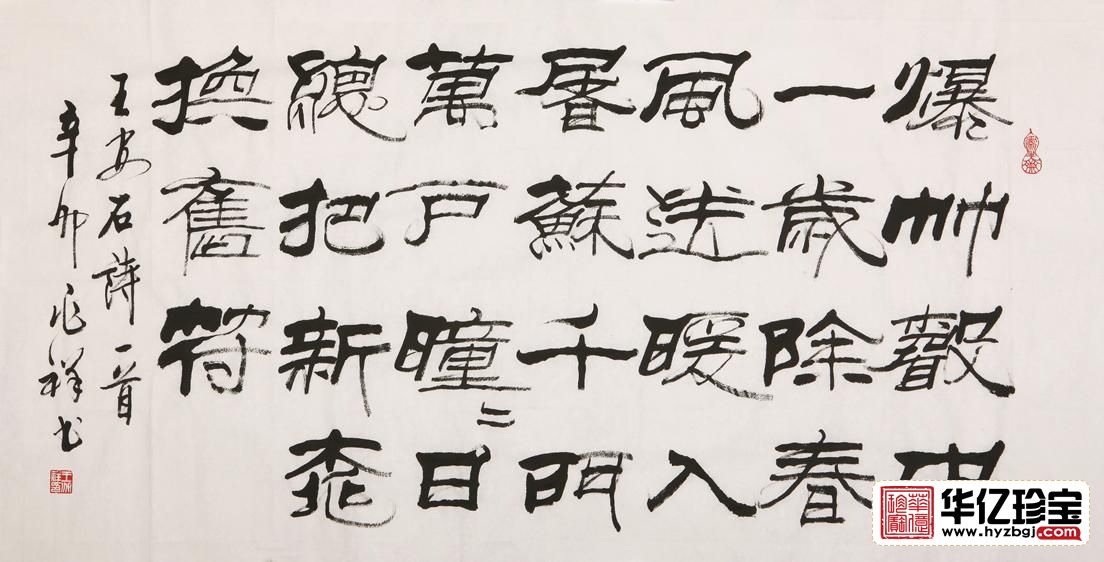 爆竹聲中
一歲除春
風送暖入
屠蘇千門
萬戶曈二日
總把新桃
換舊符
王安石詩一首
辛卯 祥书
華億珍寶
华亿珍宝
www.hyzbgj.com